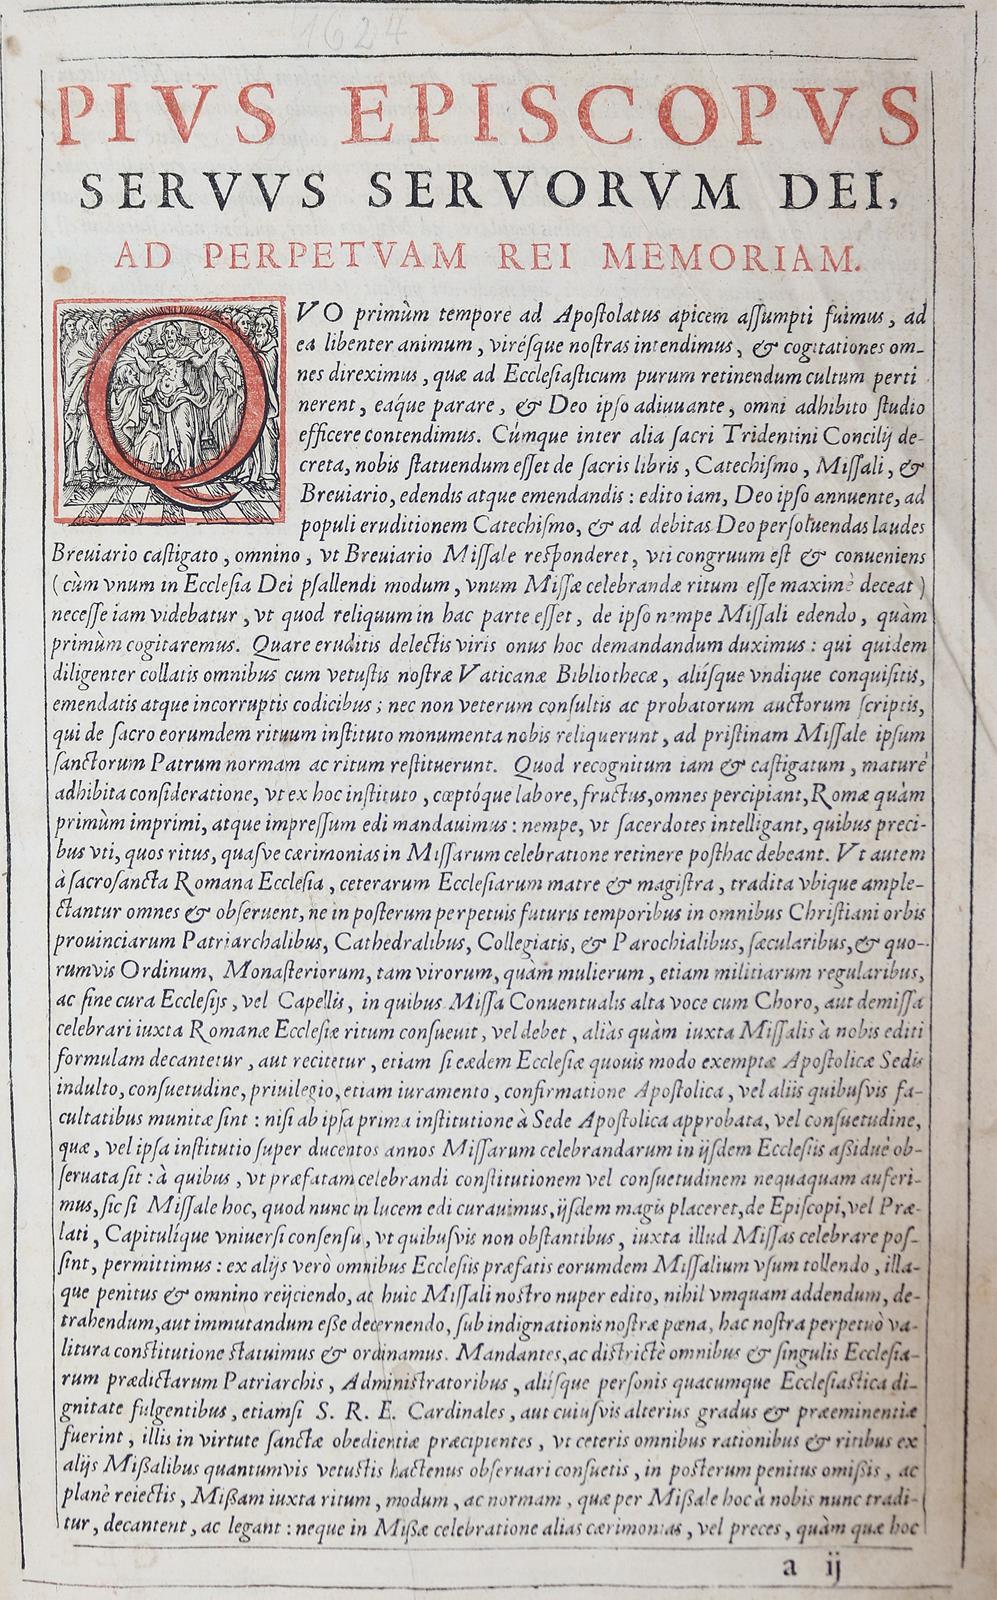 1624
PIVS EPISCOPVS
SERVVS SERVORVM DEI,
AD PERPETVAM REI MEMORIAM.
QVO primùm tempore ad Apoſtolatus apicem aſſumpti fuimus, ad
ea libenter animum, viréſque noſtras intendimus, & cogitationes om-
nes direximus, quæ ad Eccleſiaſticum purum retinendum cultum perti
nerent, eáque parare, & Deo ipſo adiuuante, omni adhibito ſtudio
efficere contendimus. Cúmque inter alia ſacri Tridentini Concilij de-
creta, nobis ſtatuendum eſſet de ſacris libris, Catechiſmo, Miſſali, &
Breuiario, edendis atque emendandis: edito iam, Deo ipſo annuente, ad
populi eruditionem Catechiſmo, & ad debitas Deo perſoluendas laudes
Breuiario caſtigato, omnino, vt Breuiario Miſſale reſponderet, vti congruum eſt & conueniens
(cùm vnum in Eccleſia Dei pſallendi modum, vnum Miſſæ celebrandæ ritum eſſe maximè deceat)
neceſſe iam videbatur, vt quod reliquum in hac parte eſſet, de ipſo nempe Miſſali edendo, quàm
primùm cogitaremus. Quare eruditis delectis viris onus hoc demandandum duximus: qui quidem
diligenter collatis omnibus cum vetuſtis noſtræ Vaticanæ Bibliothecæ, aliíſque vndique conquiſitis,
emendatis atque incorruptis codicibus; nec non veterum conſultis ac probatorum auctorum ſcriptis,
qui de ſacro eorumdem rituum inſtituto monumenta nobis reliquerunt, ad priſtinam Miſſale ipſum
ſanctorum Patrum normam ac ritum reſtituerunt. Quod recognitum iam & caſtigatum, maturè
adhibita conſideratione, vt ex hoc inſtituto, cœptóque labore, fructus, omnes percipiant, Romæ quàm
primùm imprimi, atque impreſſum edi mandauimus: nempe, vt ſacerdotes intelligant, quibus preci-
bus vti, quos ritus, quaſve cærimonias in Miſſarum celebratione retinere poſthac debeant. Vt autem
à ſacroſancta Romana Eccleſia, ceterarum Eccleſiarum matre & magiſtra, tradita vbique ample-
ctantur omnes & obſeruent, ne in poſterum perpetuis futuris temporibus in omnibus Chriſtiani orbis
prouinciarum Patriarchalibus, Cathedralibus, Collegiatis, & Parochialibus, ſæcularibus, & quo-
rumvis Ordinum, Monaſteriorum, tam virorum, quàm mulierum, etiam militiarum regularibus,
ac ſine cura Eccleſijs, vel Capellis, in quibus Miſſa Conuentualis alta voce cum Choro, aut demiſſa
celebrari iuxta Romanæ Eccleſiæ ritum conſueuit, vel debet, aliàs quàm iuxta Miſſalis à nobis editi
formulam decantetur, aut recitetur, etiam ſi eædem Eccleſiæ quouis modo exemptæ Apoſtolicæ Sedis
indulto, conſuetudine, priuilegio, etiam iuramento, confirmatione Apoſtolica, vel aliis quibuſvis fa-
cultatibus munitæ ſint: niſi ab ipſa prima inſtitutione à Sede Apoſtolica approbata, vel conſuetudine,
quæ, vel ipſa inſtitutio ſuper ducentos annos Miſſarum celebrandarum in ijſdem Eccleſiis aſsiduè ob-
ſeruata ſit: à quibus, vt præfatam celebrandi conſtitutionem vel conſuetudinem nequaquam auferi-
mus, ſic ſi Miſſale hoc, quod nunc in lucem edi curauimus, ijſdem magis placeret, de Epiſcopi, vel Præ-
lati, Capitulíque vniuerſi conſenſu, vt quibuſvis non obſtantibus, iuxta illud Miſſas celebrare poſ-
ſint, permittimus: ex alijs verò omnibus Eccleſiis præfatis eorumdem Miſſalium vſum tollendo, illa-
que penitus & omnino reijciendo, ac huic Miſſali noſtro nuper edito, nihil vmquam addendum, de-
trahendum, aut immutandum eſſe decernendo, ſub indignationis noſtræ pœna, hac noſtra perpetuò va-
litura conſtitutione ſtatuimus & ordinamus. Mandantes, ac diſtrictè omnibus & ſingulis Eccleſia-
rum prædictarum Patriarchis, Adminiſtratoribus, aliíſque perſonis quacumque Eccleſiaſtica di-
gnitate fulgentibus, etiamſi S. R. E. Cardinales, aut cuiuſvis alterius gradus & præeminentiæ
fuerint, illis in virtute ſanctæ obedientiæ præcipientes, vt ceteris omnibus rationibus & ritibus ex
alijs Mißalibus quantumvis vetuſtis hactenus obſeruari conſuetis, in poſterum penitus omiſsis, ac
planè reiectis, Mißam iuxta ritum, modum, ac normam, quæ per Mißale hoc à nobis nunc tradi-
tur, decantent, ac legant: neque in Mißæ celebratione alias cærimonias, vel preces, quàm quæ hoc
a ij